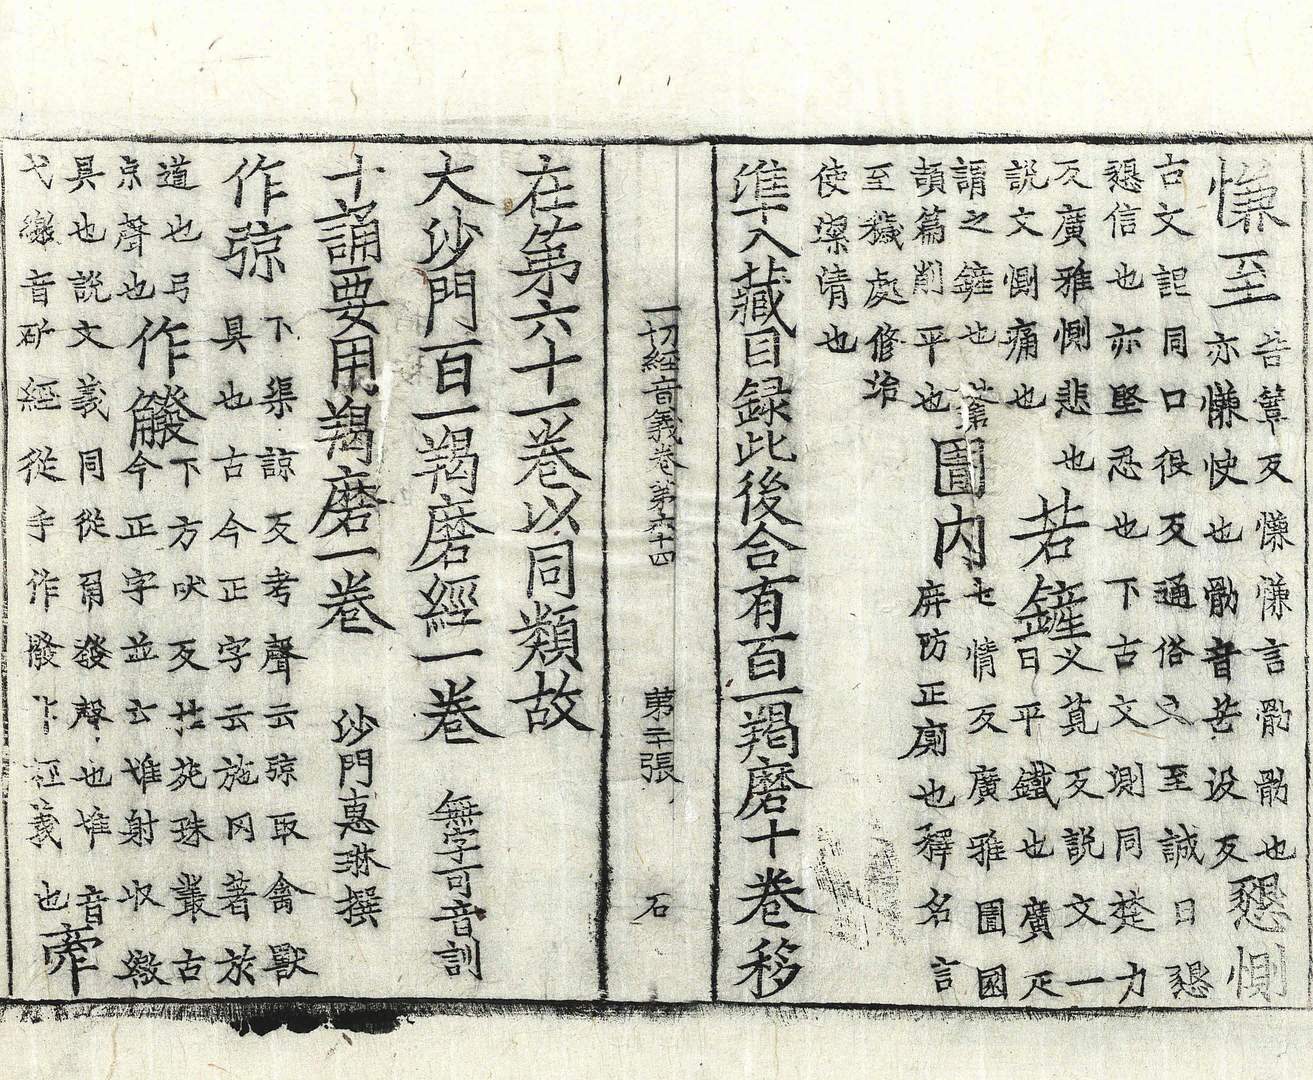 慊至
苦簟反慊慊言
亦慊快也
音苦沒反
懇惻
古文記同口很反通俗文至誠曰懇
懇信也亦堅忍也下古文測同楚力
反廣雅惻悲也
說文惻痛也
若鏟
乂莧反說文一
曰平鐵也廣疋
謂之鏟也蒼
頡篇削平也
圊内
七情反廣雅圊圂
屏防正廁也釋名言
至穢處修治
使潔清也
準入藏目録此後合有百一羯磨十卷移
一切經音義卷第六十四 第二張 石
在第六十一卷以同類故
大沙門百一羯磨經一卷 無字可音訓
十誦要用羯磨一卷 沙門惠琳撰
作弶
下渠諒反考聲云弶取禽獸
具也古今正字云施罔著於
道也弓
京聲也
作䚨
下方吠反苑珠叢古
今正字並云堆射収繳
具也說文義同從角發聲也堆音
弋繳音斫經從手作撥經義也
牽